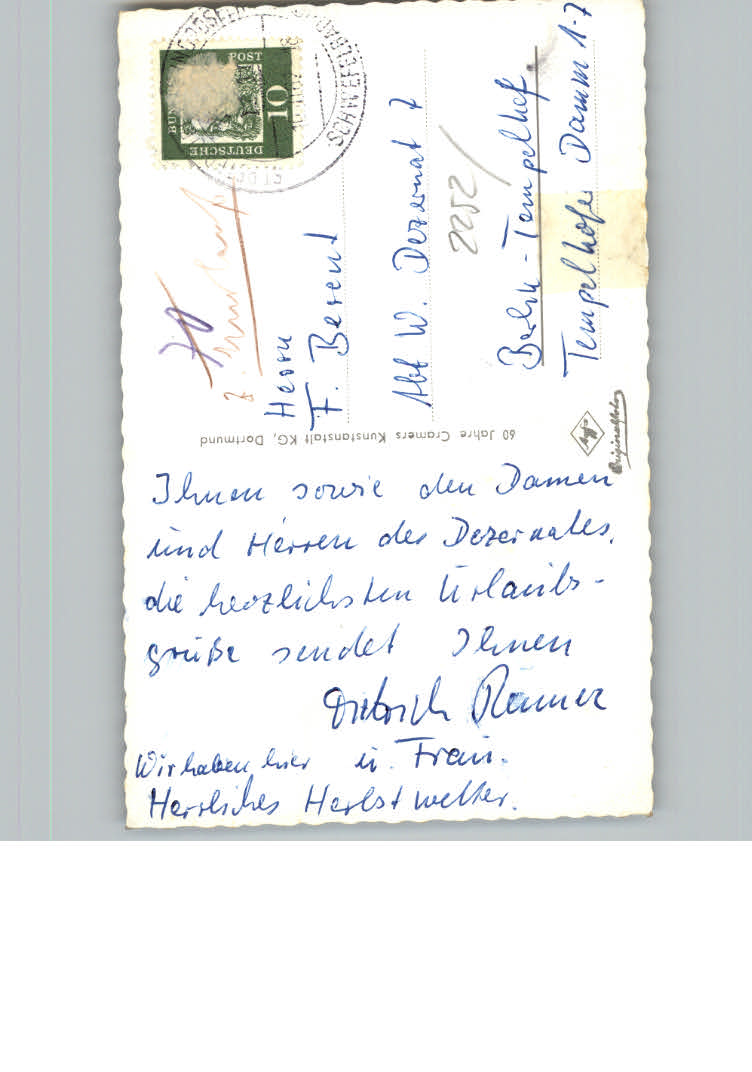 Ihnen sowie den Damen
und Herren des Dezernates,
die herzlichsten Urlaubs-
grüße sendet Ihnen
Dietrich
u. Frau.
Wir haben hier
Herrliches Herbstwetter.
60 Jahre Cramers Kunstanstalt KG, Dortmund
Agfa
Originalfoto
Herrn
F. Berent
Abt W. Dezernat 7
2252
Berlin-Tempelhof
Tempelhofer Damm 1-7
DEUTSCHE
BUN POST
10